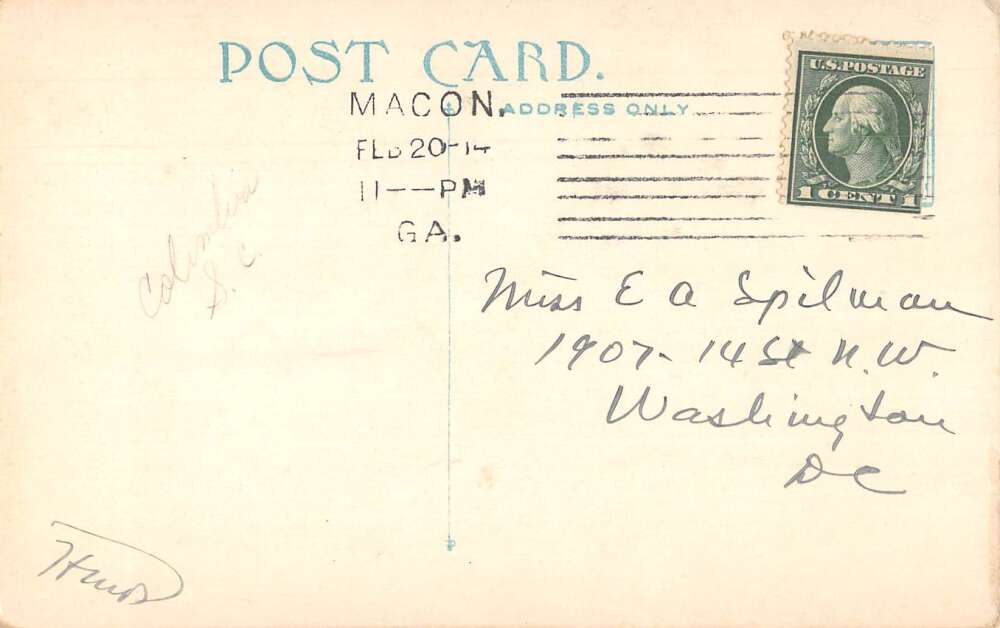 POST CARD.
ADDRESS ONLY
MACON,
FEB 20-14
11--PM
GA.
U.S. POSTAGE
1 CENT 1
Columbia
S. C.
Miss E A Spilman
1907- 14 St N.W.
Washington
DC